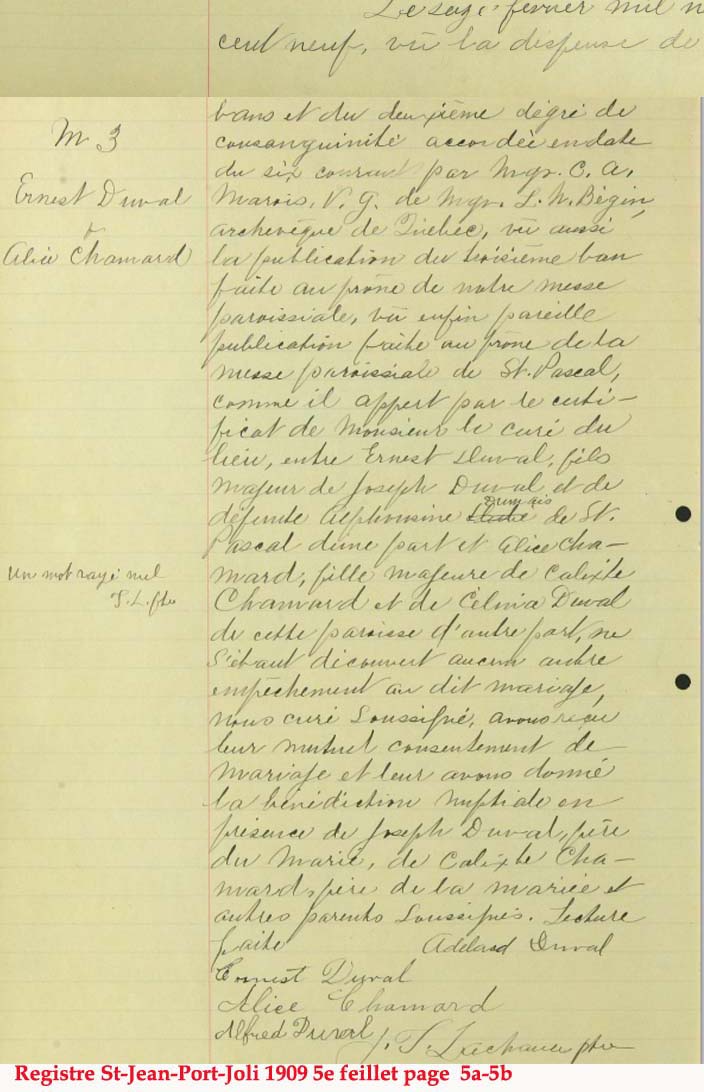 Le seize février mil n
cent neuf, vû la dispense de
M 3
Ernest Duval
&
Alice Chamard
bans et du deuxième dégré de
consanguinité accordée en date
du six courant par Mgr. C. A.
Marois, V. G. de Mgr. L. N. Bégin,
archevêque de Québec, vû aussi
la publication du troisième ban
faite au prône de notre messe
paroissiale, vû enfin pareille
publication faite au prône de la
messe paroissiale de St. Pascal,
comme il appert par le certi-
ficat de Monsieur le curé du
lieu, entre Ernest Duval, fils
majeur de Joseph Duval et de
défunte Alphonsine Dumais de St.
Pascal d'une part et Alice Cha-
mard, fille majeure de Calixte
Chamard et de Célina Duval
de cette paroisse d'autre part, ne
s'étant découvert aucun autre
empêchement au dit mariage,
nous curé soussigné, avons reçu
leur mutuel consentement de
mariage et leur avons donné
la bénédiction nuptiale en
présence de Joseph Duval, père
du marié, de Calixte Cha-
mard, père de la mariée et
autres parents soussignés. Lecture
faite
Un mot rayé nul
T. L. ptre
Adélard Duval
Ernest Duval
Alice Chamard
Alfred Duval
J. T. Lachance ptre
Registre St-Jean-Port-Joli 1909 5e feillet page 5a-5b